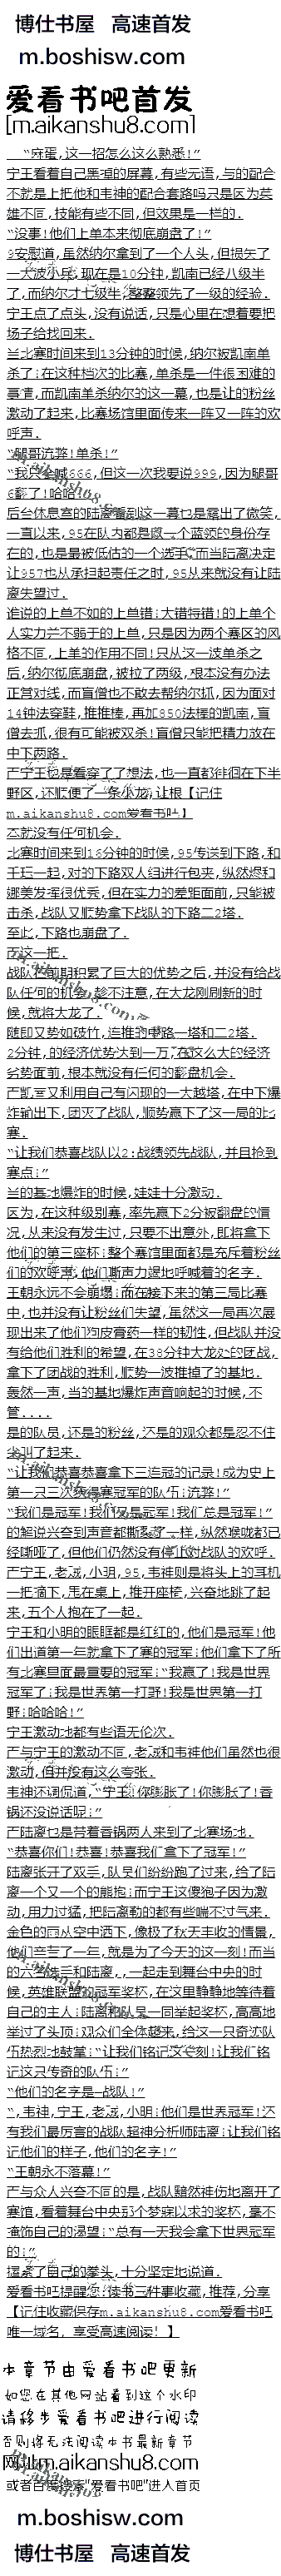 博仕书屋 高速首发
m.boshisw.com
爱看书吧首发
[m.aikanshu8.com]
“麻蛋,这一招怎么这么熟悉!”
宁王看着自己黑掉的屏幕,有些无语,与的配合
不就是上把他和韦神的配合套路吗只是因为英
雄不同,技能有些不同,但效果是一样的.
“没事!他们上单本来彻底崩盘了!”
9安慰道,虽然纳尔拿到了一个人头,但损失了
一大波小兵,现在是10分钟,凯南已经八级半
了,而纳尔才七级半;整整领先了一级的经验.
宁王点了点头,没有说话,只是心里在想着要把
场子给找回来.
当比赛时间来到13分钟的时候,纳尔被凯南单
杀了:在这种档次的比赛,单杀是一件很困难的
事情,而凯南单杀纳尔的这一幕,也是让的粉丝
激动了起来,比赛场馆里面传来一阵又一阵的欢
呼声.
“腿哥流弊!单杀!”
“我只会喊666,但这一次我要说999,因为腿哥
6翻了!哈哈!”
后台休息室的陆离看到这一幕也是露出了微笑,
一直以来,95在队内都是以一个蓝领的身份存
在的,也是最被低估的一个选手;而当陆离决定
让957也从承担起责任之时,95从来就没有让陆
离失望过.
谁说的上单不如的上单错:大错特错!的上单个
人实力并不弱于的上单,只是因为两个赛区的风
格不同,上单的作用不同!只从这一波单杀之
后,纳尔彻底崩盘,被拉了两级,根本没有办法
正常对线,而盲僧也不敢去帮纳尔抓,因为面对
14钟法穿鞋,推推棒,再加850法棒的凯南,盲
僧去抓,很有可能被双杀!盲僧只能把精力放在
中下两路.
而宁王也是看穿了了想法,也一直都徘徊在下半
野区,还顺便了一条小龙,让根【记住
m.aikanshu8.com爱看书吧】
本就没有任何机会.
比赛时间来到16分钟的时候,95传送到下路,和
宁王一起,对的下路双人组进行包夹,纵然烬和
娜美发挥很优秀,但在实力的差距面前,只能被
击杀,战队又顺势拿下战队的下路二2塔.
至此,下路也崩盘了.
而这一把.
战队在前期积累了巨大的优势之后,并没有给战
队任何的机会,趁不注意,在大龙刚刷新的时
候,就将大龙了.
随即又势如破竹,连推的中路一塔和二2塔.
2分钟,的经济优势达到一万,在这么大的经济
劣势面前,根本就没有任何的翻盘机会.
而凯南又利用自己有闪现的一大越塔,在中下爆
炸输出下,团灭了战队,顺势赢下了这一局的比
赛.
“让我们恭喜战队以2:战绩领先战队,并且抢到
赛点:”
当的基地爆炸的时候,娃娃十分激动.
因为,在这种级别赛,率先赢下2分被翻盘的情
况,从来没有发生过,只要不出意外,即将拿下
他们的第三座杯:整个赛馆里面都是充斥着粉丝
们的欢呼声,他们撕声力竭地呼喊着的名字.
王朝永远不会崩塌:而在接下来的第三局比赛
中,也并没有让粉丝们失望,虽然这一局再次展
现出来了他们狗皮膏药一样的韧性,但战队并没
有给他们胜利的希望,在38分钟大龙处的团战,
拿下了团战的胜利,顺势一波推掉了的基地.
轰然一声,当的基地爆炸声音响起的时候,不
管....
是的队员,还是的粉丝,还是的观众都是忍不住
尖叫了起来.
“让我们恭喜恭喜拿下三连冠的记录!成为史上
第一只三次获得赛冠军的队伍:流弊!”
“我们是冠军!我们又是冠军!我们总是冠军!”
的解说兴奋到声音都撕裂了一样,纵然喉咙都已
经嘶哑了,但他们仍然没有停止对战队的欢呼.
而宁王,老贼,小明,95,韦神则是将头上的耳机
一把摘下,甩在桌上,推开座椅,兴奋地跳了起
来,五个人抱在了一起.
宁王和小明的眼眶都是红红的,他们是冠军!他
们出道第一年就拿下了赛的冠军:他们拿下了所
有比赛里面最重要的冠军:“我赢了!我是世界
冠军了:我是世界第一打野!我是世界第一打
野:哈哈哈!”
宁王激动地都有些语无伦次.
而与宁王的激动不同,老贼和韦神他们虽然也很
激动,但并没有这么夸张.
韦神还调侃道,“宁王!你膨胀了!你膨胀了!香
锅还没说话呢:”
而陆离也是带着香锅两人来到了比赛场地.
“恭喜你们!恭喜!恭喜我们拿下了冠军!”
陆离张开了双手,队员们纷纷跑了过来,给了陆
离一个又一个的熊抱:而宁王这傻狍子因为激
动,用力过猛,把陆离勒的都有些喘不过气来.
金色的雨从空中洒下,像极了秋天丰收的情景,
他们辛苦了一年,就是为了今天的这一刻!而当
的六名选手和陆离,,一起走到舞台中央的时
候,英雄联盟的冠军奖杯,在这里静静地等待着
自己的主人:陆离和队员一同举起奖杯,高高地
举过了头顶:观众们全体起来,给这一只奇迹队
伍热烈地鼓掌:“让我们铭记这一刻!让我们铭
记这只传奇的队伍:”
“他们的名字是—战队!”
“,韦神,宁王,老贼,小明:他们是世界冠军!还
有我们最厉害的战队超神分析师陆离:让我们铭
记他们的样子,他们的名字!”
“王朝永不落幕!”
而与众人兴奋不同的是,战队黯然神伤地离开了
赛馆,看着舞台中央那个梦寐以求的奖杯,毫不
掩饰自己的渴望:“总有一天我会拿下世界冠军
的:”
握紧了自己的拳头,十分坚定地说道.
爱看书吧提醒您:读书三件事收藏,推荐,分享
【记住收藏保存m.aikanshu8.com爱看书吧
唯一域名, 享受高速阅读! 】
本章节由爱看书吧更新
如您在其他网站看到这个水印
请移步爱看书吧进行阅读
否则将无法阅读本书最新章节
网址m.aikanshu8.com
或者百度搜索"爱看书吧"进入首页
m.boshisw.com
博仕书屋 高速首发